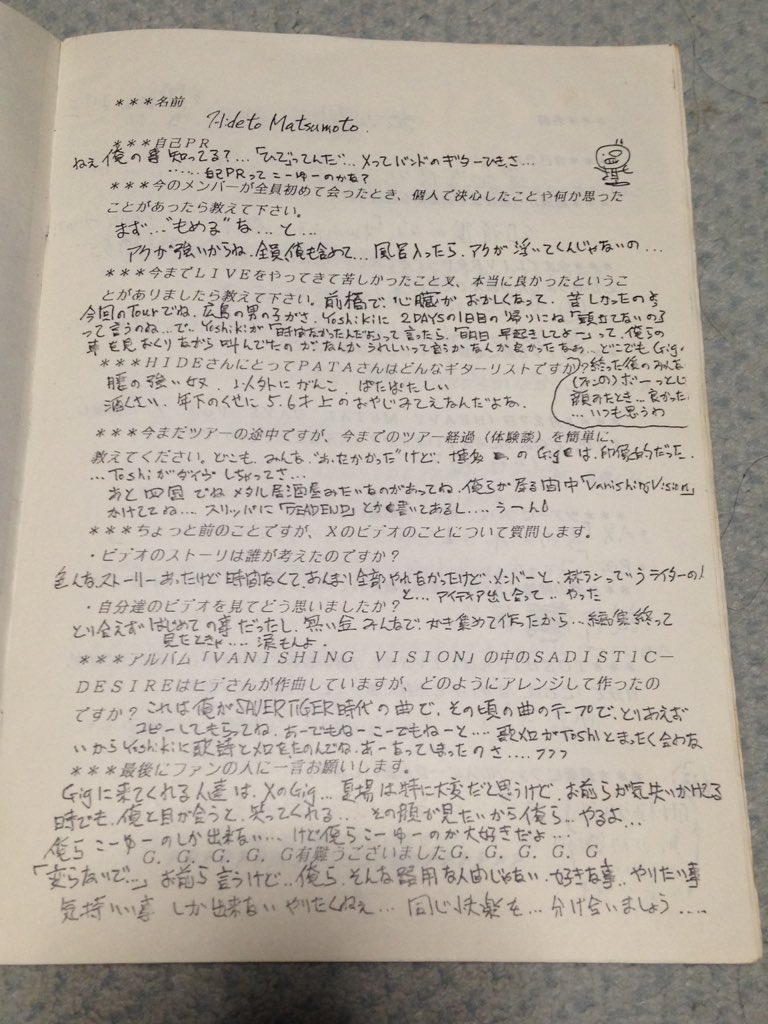 ＊＊＊名前
Hideto Matsumoto.
＊＊＊自己ＰＲ
ねぇ俺の事知ってる?…「ひで」ってんだ…Xってバンドのギターひきさ…
……自己PRってこーゆーのかな?
＊＊＊今のメンバーが全員初めて会ったとき、個人で決心したことや何か思った
ことがあったら教えて下さい。
まず…"もめる"な…と…
アクが強いからね.全員俺も含めて…風呂入ったら.アクが浮いてくんじゃないの…
＊＊＊今までＬＩＶＥをやってきて苦しかったこと又、本当に良かったというこ
とがありましたら教えて下さい。前橋で.心臓がおかしくなって.苦しかったのと
今回のTourでね.広島の男の子がさ.Yoshikiに2DAYSの1日目の帰りにね「頭立てないの」
って言うのね…で.Yoshikiが「時間なかったんだ」って言ったら.「明日早起きしてよー」って.俺らの
車を見おくりながら叫んでたのがなんかうれしいって言うかなんか良かったなぁ…どこでもGig.
終った後のみんな
(ファンの)ボーっとし
顔みたとき…良かった
…いつも思うわ
＊＊＊ＨＩＤＥさんにとってＰＡＴＡさんはどんなギターリストですか？
腰の強い奴.以外にがんこ.ぱたぱたしい
酒くさい.年下のくせに5.6才上のおやじみてえなんだよな.
＊＊＊今まだツアーの途中ですが、今までのツアー経過（体験談）を簡単に、
教えてください。どこも.みんな.あたたかかったけど.博多のGigは.印象的だった.
…Toshiがダイヴしちゃってさ…
あと四国でね メタル居酒屋みたいなのがあってね.俺らが居る間中「Vanishing Vision」
かけててね…スリッパに「DEADEND」とか書いてあるし….うーん!
＊＊＊ちょっと前のことですが、Ｘのビデオのことについて質問します。
・ビデオのストーリは誰が考えたのですか？
色んなストーリーあったけど時間なくて.あんまり全部やれなかったけど.メンバーと.林ランっていうライターの人
と…アイディア出し合って..やった
・自分達のビデオを見てどう思いましたか？
とり会えずはじめての事だったし.無い金みんなで.かき集めて作ったから…編集終って
見たときゃ….涙もんよ.
＊＊＊アルバム「ＶＡＮＩＳＨＩＮＧ　ＶＩＳＩＯＮ」の中のＳＡＤＩＳＴＩＣ―
ＤＥＳＩＲＥはヒデさんが作曲していますが、どのようにアレンジして作ったの
ですか？これは俺がSAVER TIGER時代の曲で.その頃の曲のテープで.とりあえず
コピーしてもらってね.あーでもねーこーでもねーと…歌メロがToshiとまったく合わな
いからYoshikiに歌詩とメロをたのんでね.あーなってしまったのさ….フフフ
＊＊＊最後にファンの人に一言お願いします。
Gigに来てくれる人達は.XのGig…夏場は特に大変だと思うけど.お前らが気失いかける
時でも.俺と目が合うと.笑ってくれる..その顔が見たいから俺ら..やるよ…
俺らこーゆーのしか出来ない…けど俺らこーゆーのが大好きだよ…
Ｇ．Ｇ．Ｇ．Ｇ．Ｇ有難うございましたＧ．Ｇ．Ｇ．Ｇ．Ｇ
「変らないで…」お前ら言うけど..俺ら.そんな器用な人間じゃない.好きな事..やりたい事
気持いい事しか出来ないやりたくねぇ…同じ快楽を…分け合いましょう….